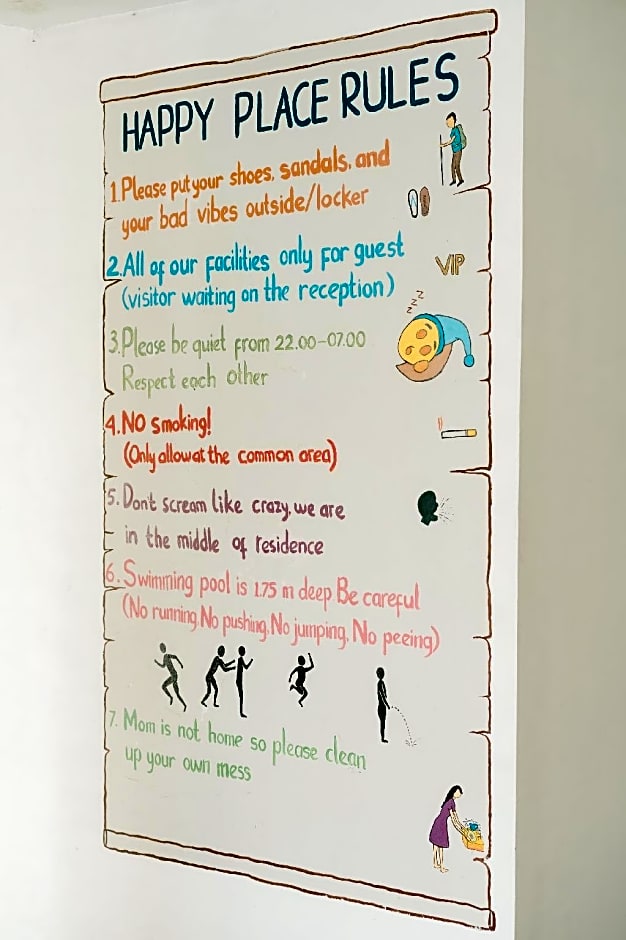 HAPPY PLACE RULES
1. Please put your shoes, sandals, and
your bad vibes outside/locker
2. All of our facilities only for guest
(visitor waiting on the reception)
VIP
zzz
3. Please be quiet from 22.00-07.00
Respect each other
4. NO smoking!
(Only allow at the common area)
5. Don't scream like crazy, we are
in the middle of residence
6. Swimming pool is 1.75 m deep. Be careful
(No running, No pushing, No jumping, No peeing)
7. Mom is not home so please clean
up your own mess